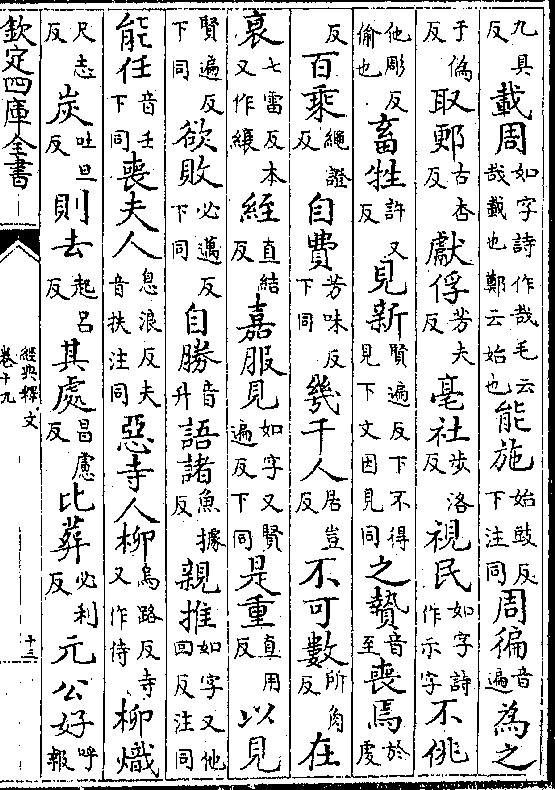 九具反載周如字詩作哉毛云哉載也鄭云始也能施始豉反下注同周徧音遍為之
于偽反取郠古杏反獻俘芳夫反亳社步洛反視民如字詩作示字不佻
他彫反偷也畜牲許又反見新賢遍反下不得見下文因見同之贄音至喪焉於虔
反百乘繩證反自費芳味反下同幾千人居豈反不可數所角反在
衰七雷反本又作縗絰直結反嘉服見如字又賢遍反下同是重直用反以見
賢遍反下同欲敗必邁反下同自勝音升語諸魚據反親推如字又他回反注同
能任音壬下同喪夫人息浪反夫音扶注同惡寺人柳烏路反寺又作侍柳熾
尺志反炭吐旦反則去起呂反其處昌慮反比葬必利反元公好呼報
欽定四庫全書
經典釋文
卷十九
十三